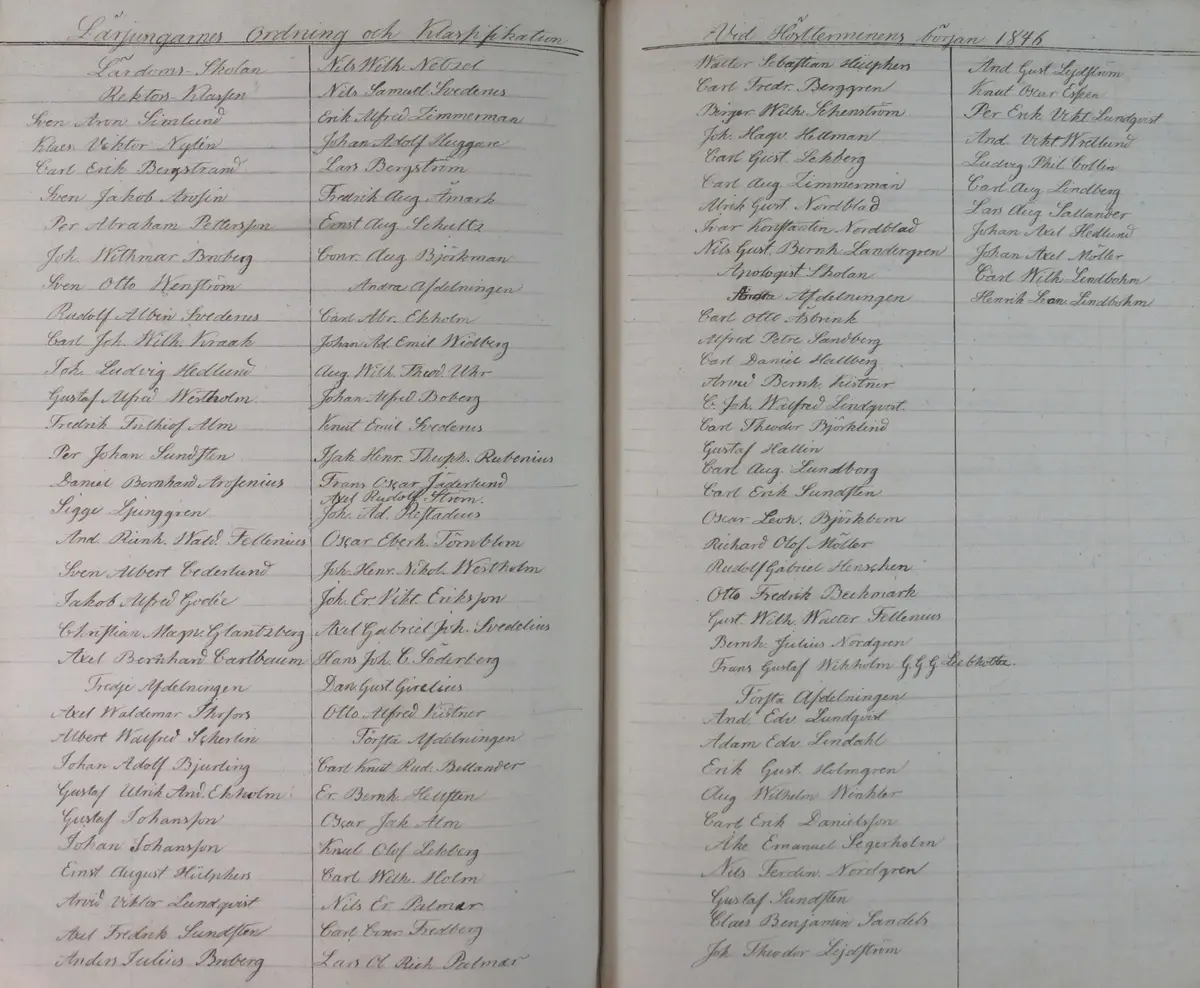 Lärjungarnes ordning och Klassifikation
Lärdoms-Skolan
Rektors-Klassen
Sven Aron Simlund
Klaes Viktor Nylin
Carl Erik Bergstrand
Sven Jakob Arosin
Per Abraham Pettersson
Joh. Withmar Broberg
Sven Otto Wenström
Rudolf Albin Svedenus
Carl Joh. Wilh. Kraak
Joh. Ludvig Hedlund
Gustaf Alfred Westholm
Fredrik Frithiof Alm
Per Johan Sundsten
Daniel Bernhard Arosenius
Sigge Ljunggren
And. Reinh. Wald. Fellenius
Sven Albert Cederlund
Jakob Alfred Godée
Christian Magn. Glantzberg
Axel Bernhard Carlbaum
Tredje Afdelningen
Axel Waldemar Thofors
Albert Walfred Scherlin
Johan Adolf Bjurling
Gustaf Ulrik And. Ekholm
Gustaf Johansson
Johan Johansson
Ernst August Hülphers
Arvid Viktor Lundqvist
Axel Fredrik Sundsten
Anders Julius Broberg
Nils Wilh. Netzel
Nils Samuel Svedenus
Erik Alfred Zimmerman
Johan Adolf Huggare
Lars Bergström
Fredrik Aug. Åmark
Ernst Aug. Schultz
Conr. Aug Björkman
Andra Afdelningen
Carl Abr. Ekholm
Johan Ad. Emil Widberg
Aug. Wilh. Theod. Uhr
Johan Alfred Boberg
Knut Emil Svedenus
Isak Henr. Theoph. Rubenius
Frans Oscar Jäderlund
Axel Rudolf Ström
Joh. Ad. Restadius
Oscar Eberh. Törnblom
Joh. Henr. Nikol. Westholm
Joh. Er. Vikt. Eriksson
Axel Gabriel Joh. Svedelius
Hans Joh. C. Söderberg
Dan Gust Girelius
Otto Alfred Kistner
Första Afdelningen
Carl Knut Rud. Bellander
Er. Bernh. Hellsten
Oscar Jak Alm
Knut Olof Lekberg
Carl Wilh. Holm
Nils Er. Palmær
Carl Conr Fredberg
Lars Ol Rich. Palmær
Vid Höstterminens början 1846
Walter Sebastian Hülphers
Carl Fredr. Berggren
Birger Wilh. Schenström
Joh. Hage Hellman
Carl Gust Lekberg
Carl Aug. Zimmerman
Ulrik Gust. Nordblad
Ivar Konstantin Nordblad
Nils Gust. Bernh. Landergren
Apologist Skolan
Andra Afdelningen
Carl Otto Asbrink
Alfred Petre Sandberg
Carl Daniel Hallberg
Arvid Bernh. Kistner
C. Joh. Walfred Lindqvist
Carl Theodor Björklind
Gustaf Hallin
Carl Aug. Lundborg
Carl Erik Sundsten
Oscar Leon. Björkbom
Richard Olof Möller
Rudolf Gabriel Henschen
Otto Fredrik Beckmark
Gust. Wilh. Walter Fellenius
Bernh. Julius Nordgren
Frans Gustaf Wikholm G.G.G Leebholtz
Första Afdelningen
And. Edv Lundqvist
Adam Edv. Lindahl
Erik Gust. Holmgren
Aug Wilhelm Winkler
Carl Erik Danielsson
Åke Emanuel Segerholm
Nils Ferdin. Nordgren
Gustaf Sundsten
Claes Benjamin Sandels
Joh Theodor Lejdström
And Gust Lejdström
Knut Oscar Espen
Per Erik Vikt Lundqvist
And. Vikt Wedlund
Ludvig Phil Collen
Carl Aug Lindberg
Lars Aug Sallander
Johan Axel Hedlund
Johan Axel Möller
Carl Wilh Lindbohm
Henrik Leon Lindbohm